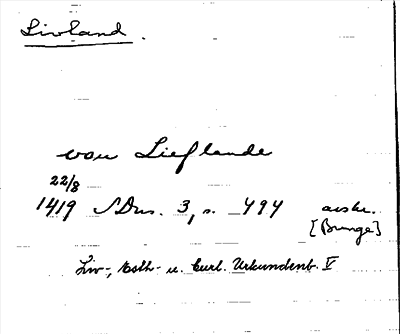 Livland.
von Lieflande
22/8
1419 SDns. 3, s. 494 avskr.
[Bunge]
Liv-, Esth- u. Curl. Urkundenb. V